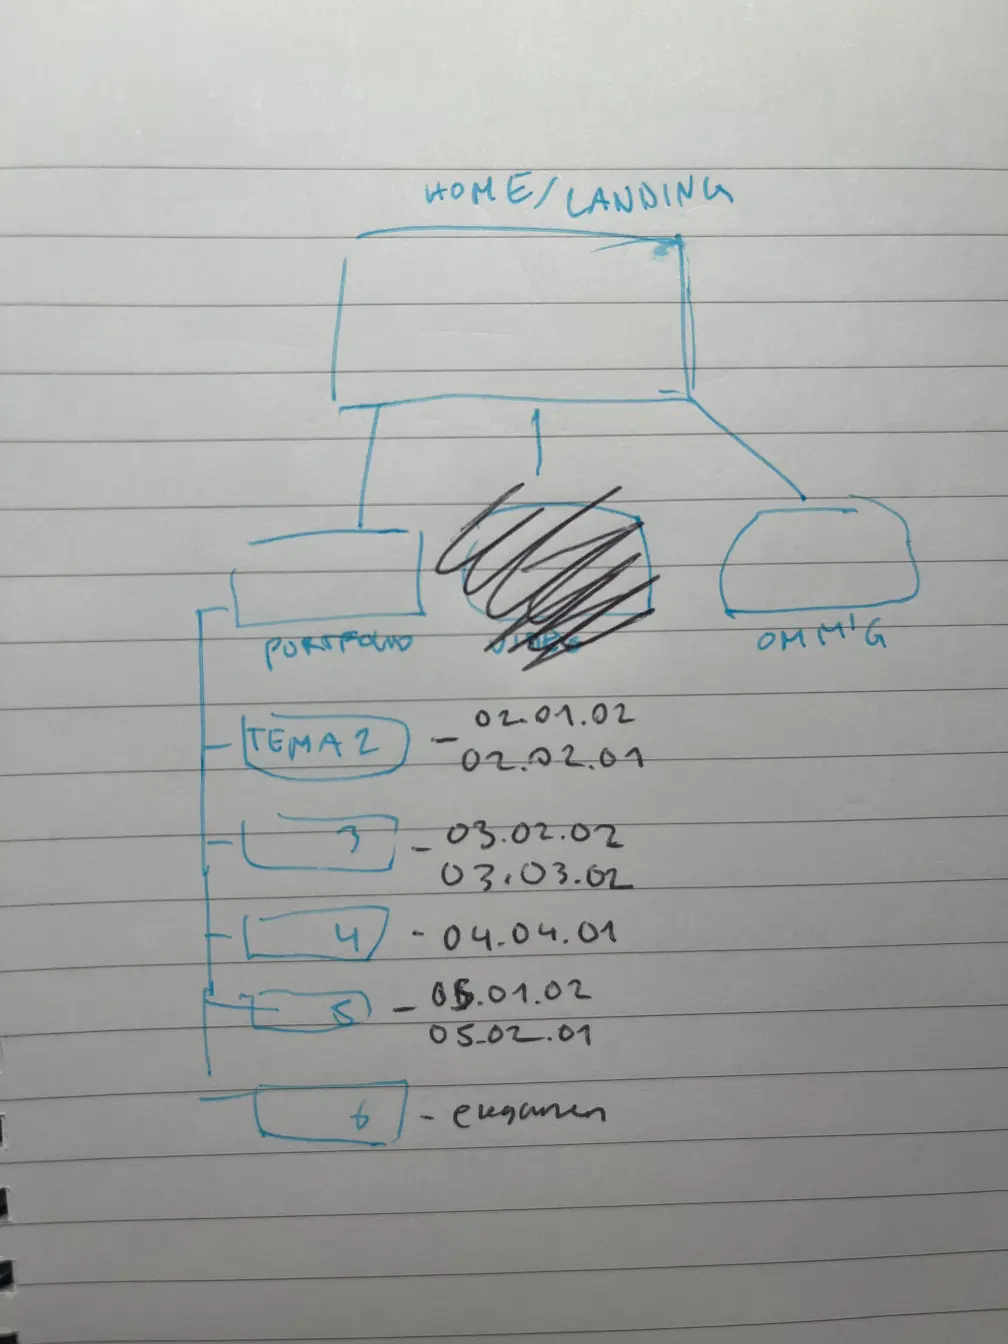 HOME/LANDING
PORTFOLIO
OM MIG
TEMA 2
- 02.01.02
02.02.01
3
- 03.02.02
03.03.02
4
- 04.04.01
5
- 05.01.02
05.02.01
6